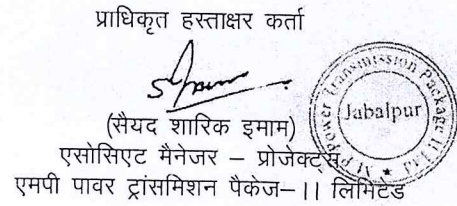 प्राधिकृत हस्ताक्षर कर्ता
(सैयद शारिक इमाम)
एसोसिएट मैनेजर – प्रोजेक्ट्स
एमपी पावर ट्रांसमिशन पैकेज–।। लिमिटेड
M.P. Power Transmission Package II Ltd
Jabalpur